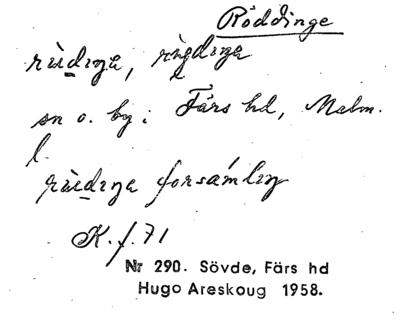 Röddinge
rùdiŋa, rìgdiŋa
sn o. by i Färs hd, Malm.
l.
rùdiŋa forsámliŋ
K. f. 71
Nr 290. Sövde, Färs hd
Hugo Areskoug 1958.